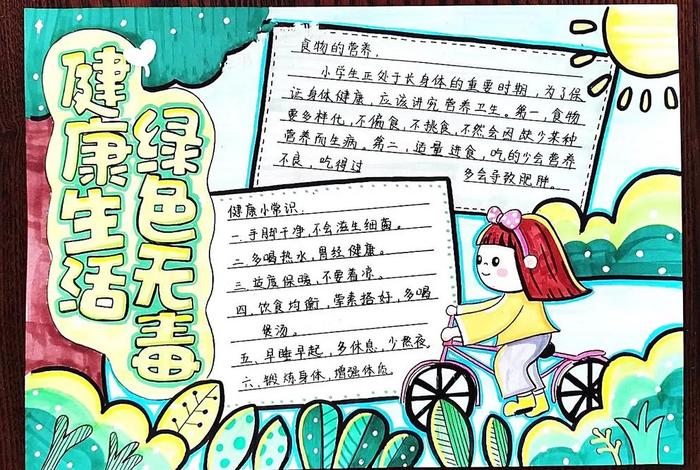 健康生活
绿色无毒
食物的营养.
小学生正处于长身体的重要时期，为了保
证身体健康，应该讲究营养卫生。第一，食物
更多样化，不偏食，不挑食，不然会因缺少某种
营养而生病。第二，适量进食，吃的少会营养
不良，吃得过 多会导致肥胖。
健康小常识.
一.手脚干净,不会滋生细菌。
二.多喝热水,胃经健康。
三.适度保暖,不要着凉。
四.饮食均衡,荤素搭好,多喝
煲汤。
五.早睡早起,多休息 少熬夜
六.锻炼身体,增强体质